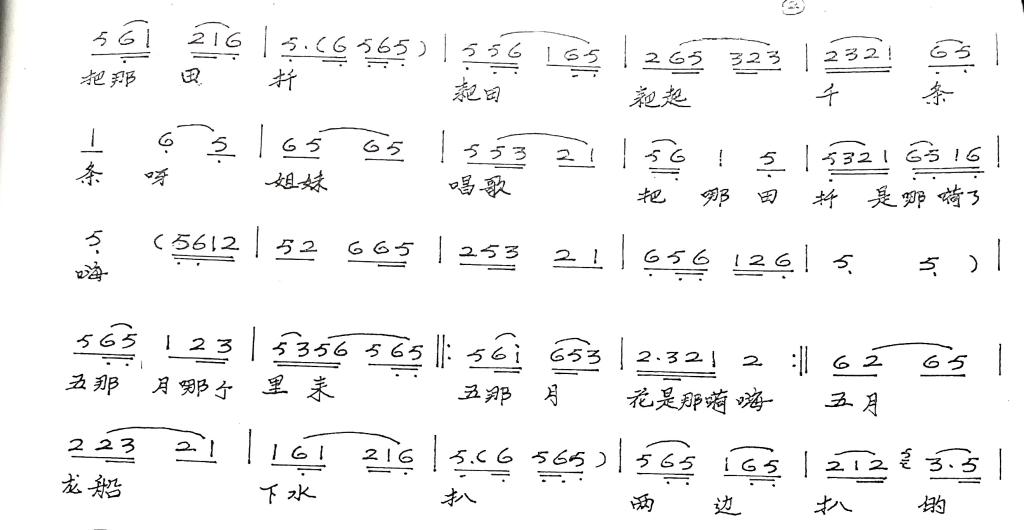 5 6 1 2 1 6 | 5 . ( 6 5 6 5 ) | 5 5 6 1 6 5 | 2 6 5 3 2 3 | 2 3 2 1 6 5 |
把那 田 扦 耙田 耙起 千 条
1 6 5 | 6 5 6 5 | 5 5 3 2 1 | 5 6 1 5 | 5 3 2 1 6 5 1 6 |
条 呀 姐妹 唱歌 把 哪 田 扦 是 哪 嗬了
5 ( 5 6 1 2 | 5 2 6 6 5 | 2 5 3 2 1 | 6 5 6 1 2 6 | 5 5 ) |
嗨
5 6 5 1 2 3 | 5 3 5 6 5 6 5 ‖: 5 6 i 6 5 3 | 2 . 3 2 1 2 :‖ 6 2 6 5 |
五那 月哪个 里来 五那 月 花是那嗬嗨 五月
2 2 3 2 1 | 1 6 1 2 1 6 | 5 . ( 6 5 6 5 ) | 5 6 5 1 6 5 | 2 1 2 5 3 . 5 |
龙船 下水 扒 两 边 扒 的